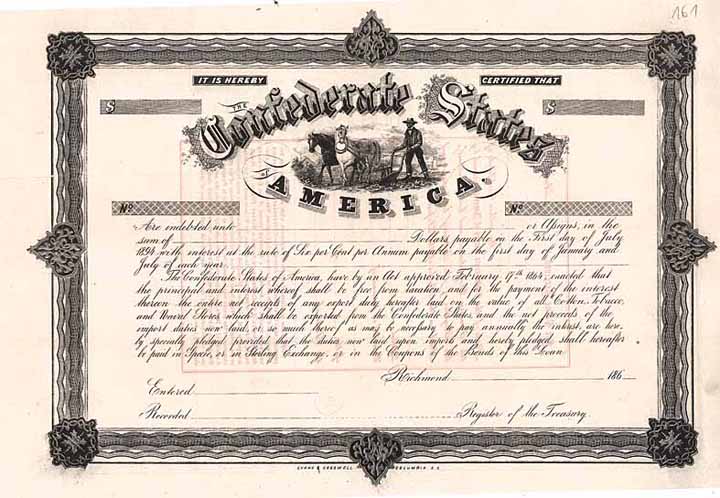 161
IT IS HEREBY CERTIFIED THAT
$ $
THE Confederate States
OF
AMERICA
No No
Are indebted unto or Assigns, in the
sum of Dollars payable on the First day of July
1894 with interest at the rate of Six per Cent per Annum payable on the first day of January and
July of each year
The Confederate States of America, have by an Act approved February 17th 1864, enacted that
the principal and interest whereof shall be free from taxation, and for the payment of the interest
thereon the entire net receipts of any export duty hereafter laid on the value of all Cotton, Tobacco,
and Naval Stores, which shall be exported from the Confederate States, and the net proceeds of the
import duties now laid, or so much thereof as may be necessary to pay annually the interest, are here-
by specially pledged provided that the duties now laid upon imports and hereby pledged shall hereafter
be paid in Specie, or in Sterling Exchange, or in the Coupons of the Bonds of this Loan
Richmond 186
Entered
Recorded Register of the Treasury.
EVANS & COGSWELL COLUMBIA S.C.